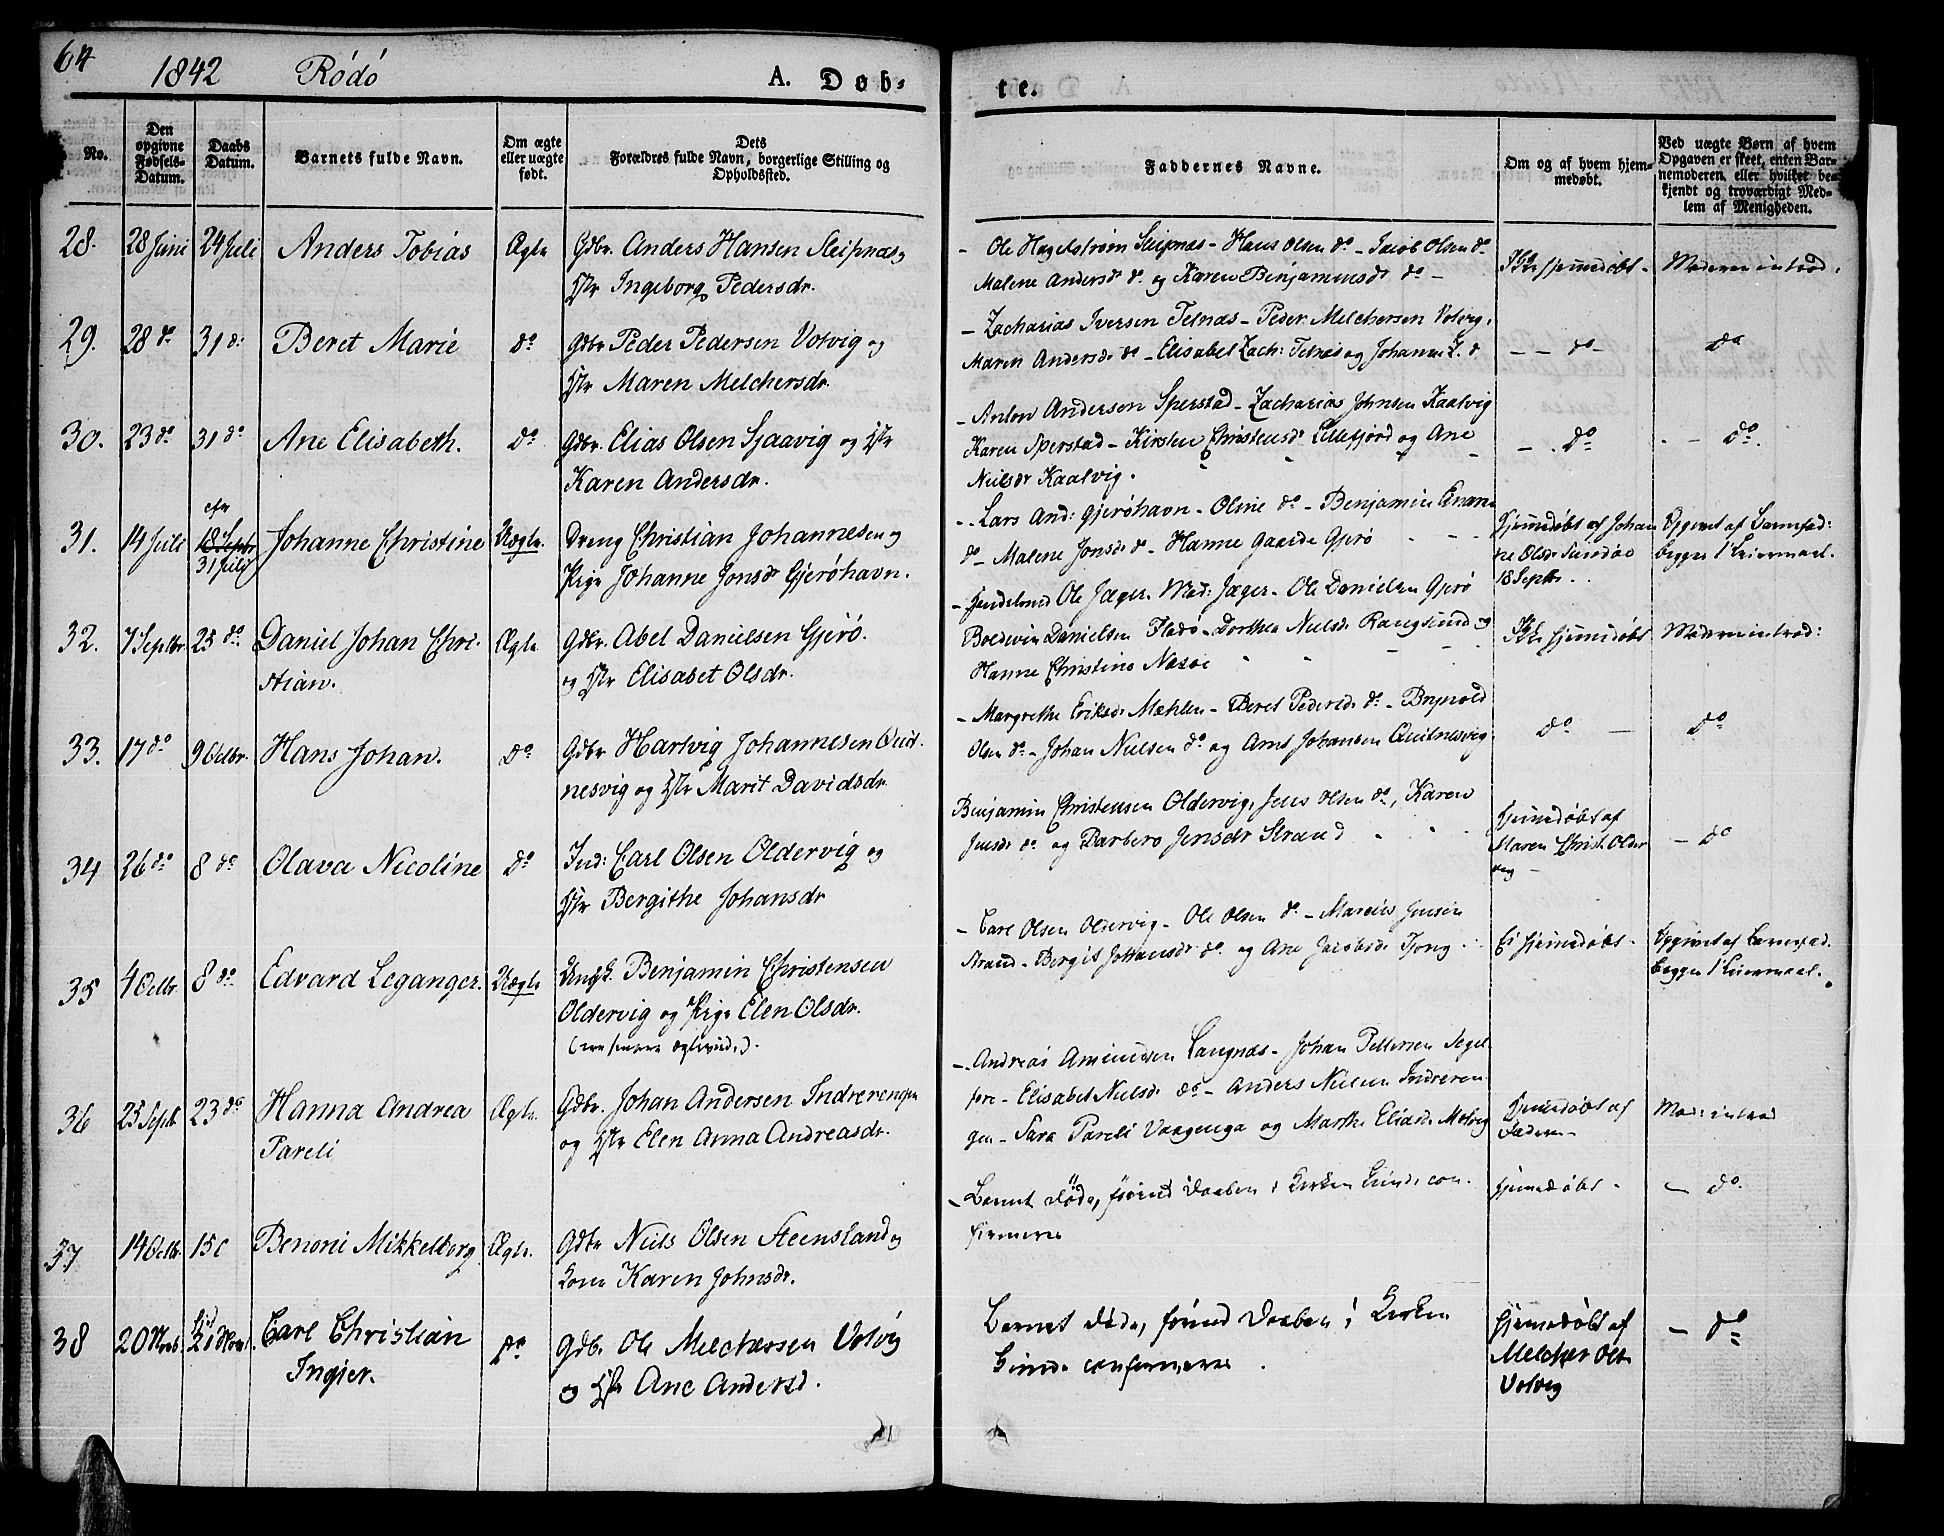 64
1842 Rödö A. Döb-
te.
No.
Den opgivne Fødsels-Datum.
Daabs Datum.
Barnets fulde Navn.
Om ægte eller uægte født.
Dets Forældres fulde Navn, borgerlige Stilling og Opholdssted.
Faddernes Navne.
Om og af hvem hjemmedøbt.
Ved uægte Børn af hvem Opgaven er skeet, enten Barnemoderen, eller hvilket bekjendt og troværdigt Medlem af Menigheden.
28. 28 Juni 24 Juli Anders Tobias Ægte Gdbr. Anders Hansen Sleipnæs og
Hstr Ingeborg Pedersdr.
- Ole Hagelstrøm Sleipnæs - Hans Olsen do - Jacob Olsen do
Malene Andersdr do og Karen Benjaminsdr do -
Ikke hjemmedøbt - Moderen introd.
29. 28 do 31 do Beret Marie do Gdbr Peder Pedersen Volvig og
Hstr Maren Melchersdr.
- Zacharias Iversen Telnæs - Peder Melchersen Volvig,
Maren Andersdr do - Elisabet Zach: Telnæs og Johanna Z. do
- - do - do
30. 23 do 31 do Ane Elisabeth. do Gdbr. Elias Olsen Sjaavig og Hstr
Karen Andersdr.
- Anton Andersen Sperstad - Zacharias Johnsen Kaalvig
Karen Sperstad - Kirsten Christensdr Lillefjord og Ane
Nielsdr Kaalvig.
- do - do.
31. 14 Juli cfr 18 Septbr 31 Juli Johanne Christine Uægte. Dreng Christian Johannesen og
Pige Johanne Jonsdr Gjeröhavn.
- Lars And: Gjeröhavn - Oline do - Benjamin Enarsen
do - Malene Jonsdr do - Hanne Gaarde Gjerö
Hjemmedøbt af Johanne Olsdr
18 Septbr.
Opgivet af Barnefad:
begges 1ste Leiermaal.
32. 7 Septbr 25 do Daniel Johan Christian. Ægte. Gdbr. Abel Danielsen Gjerö.
og Hstr Elisabet Olsdr.
- Handelsmd Ole Jæger. Mad: Jæger - Ole Danielsen Gjerö
Boedevin Danielsen Flatö - Dorthea Nielsdr Rangsund og
Hanne Christine Næsöe
Ikke hjemmedøbt Moderen introd:
33. 17 do 9 Octbr. Hans Johan. do Gdbr Hartvig Johannesen Qvitnesvig og Hstr Marit Davidsdr
- Margrethe Eriksdr Mæhlen - Beret Pedersdr do - Brynold
Olsen do - Johan Nielsen do og Arnt Johansen Qvitnesvig
do - do
34 26 do 8 do Olava Nicoline do Ind: Carl Olsen Oldervig og
Hstr Bergithe Johansdr
Benjamin Christensen Oldervig, Jens Olsen do, Karen
Jensdr do og Barbero Jensdr Strand
Hjemmedøbt af
Maren Christ. Oldervig
- do
35 4 Octbr. 8 do Edvard Leganger. Uægte Ungk. Benjamin Christensen
Oldervig og Pige Elen Olsdr.
- Carl Olsen Oldervig - Ole Olsen do - Marcus Jensen
Strand - Bergit Johansdr do og Ane Jacobsdr Tjong
Ei hjemmedøbt. Opgivet af Barnefad.
begges 1ste Leiermaal.
36 25 Septb 23 do Hanna Andrea
Pareli
Ægte. Gdbr. Johan Andersen Indrerengen
og Hstr Elen Anna Andreasdr.
- Andreas Amundsen Langnæs - Johan Pettersen Segelfore - Elisabet Nielsdr do - Anders Nielsen Indrerengen - Sara Pareli Vaagenga og Marthe Eliasdr Molvig
Hjemmedøbt af
Faderen
Mod: introd
37 14 Octb. 15 Benoni Mikkelborg Ægte. Gdbr Niels Olsen Steensland og
Kone Karen Johnsdr.
- Barnet døde, førend Daaben i Kirken kunde confirmeres
hjemmedøbt - - do.
38 20 Novb 21 Novb. Carl Christian
Ingier.
do Gdb. Ole Melchersen Volvig
og Hstr Ane Andersd.
Barnet døde, førend Daaben i Kirken
kunde confirmeres.
Hjemmedøbt af
Melcher Ols.
Volvig
- do